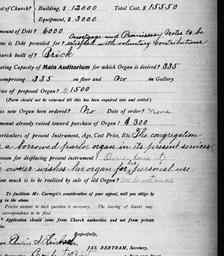 of Church { - Building, $ 12000 Total Cost, $ 15550
Equipment, $ 3000
mount of Debt? 6000
Mortgage and Promissory Notes to be
is Debt provided for? satisfied with voluntary Contributions
Church built of? Brick
ating Capacity of Main Auditorium for which Organ is desired? 335
omprising 335 on floor and No in Gallery.
rice of proposed Organ? $ 1500
(Form should not be returned till this has been required into and settled)
as new Organ been ordered? No Date of order? None
mount already raised toward purchase of Organ? $ 300
articulars of present Instrument, Age, Cost Price, Etc. The congregation
a borrowed parlor organ in its present services
eason for displacing present instrument?
owner wishes her organ for personal use
ow much is to be realized by sale of old Organ?
To facilitate Mr. Carnegie's consideration of your appeal, will you oblige by
ing in the above
Precise answer to each question is necessary. The leaving of blanks may
correspondence to be filed.
Application should come from Church authorities and not from private
iduals.
Respectfully,
JAS. BERTRAM, Secretary,